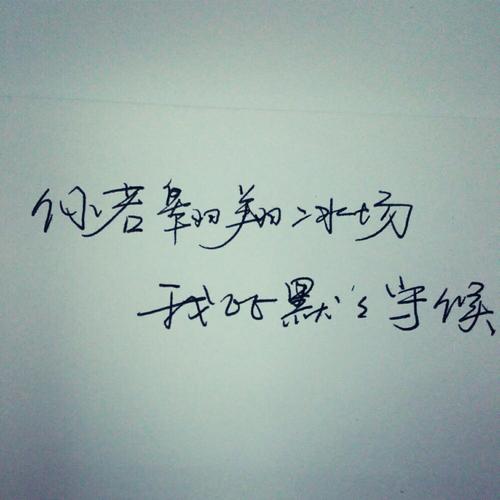 你若翱翔冰场
我默々守候